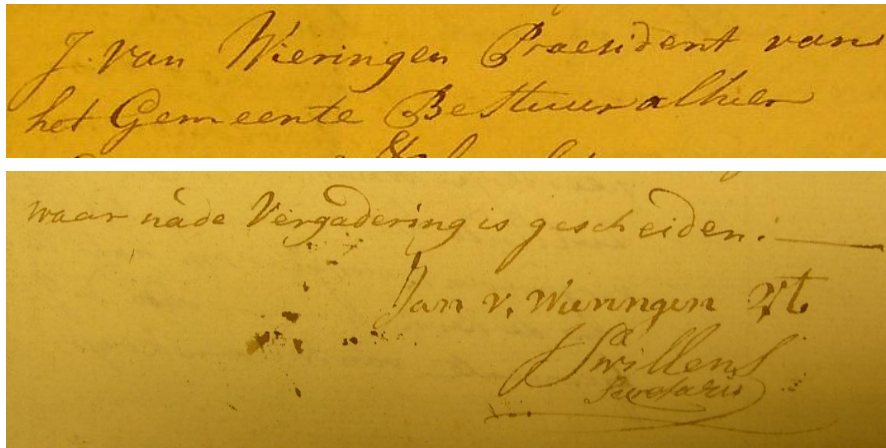 J. van Wieringen Praesident van
het Gemeente Bestuur alhier
waar nade Vergadering is gescheiden:
Jan v. Wieringen
J Swillens
Secretaris